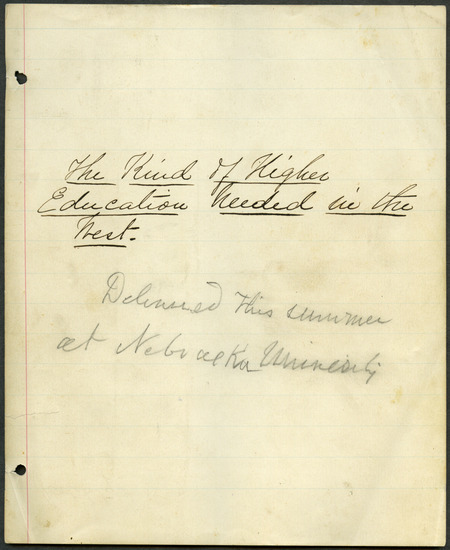 The Kind of Higher
Education Needed in the
West.
Delivered this summer
at Nebraska University